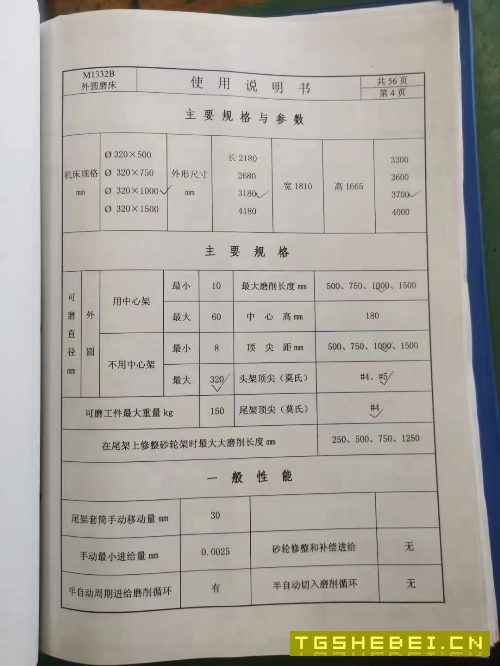 M1332B
外圆磨床
使用说明书
共 56 页
第 4 页
主要规格与参数
机床规格
mm
Ø 320×500
Ø 320×750
Ø 320×1000
Ø 320×1500
外形尺寸
mm
长 2180
2680
3180
4180
宽 1810
高 1665
3300
3600
3700
4000
主要规格
可磨直径mm
外圆
用中心架
最小
10
最大磨削长度 mm
500、750、1000、1500
最大
60
中心高 mm
180
不用中心架
最小
8
顶尖距 mm
500、750、1000、1500
最大
320
头架顶尖（莫氏）
#4、#5
可磨工件最大重量 kg
150
尾架顶尖（莫氏）
#4
在尾架上修整砂轮架时最大大磨削长度 mm
250、500、750、1250
一般性能
尾架套筒手动移动量 mm
30
手动最小进给量 mm
0.0025
砂轮修整和补偿进给
无
半自动周期进给磨削循环
有
半自动切入磨削循环
无
TGSHEBEI.CN